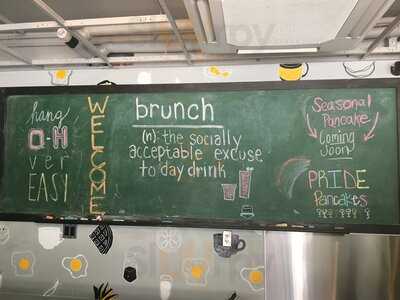 hang
O-H
ver
EASY
WELCOME
brunch
(n): the socially
acceptable excuse
to day drink
Seasonal
Pancake
Coming
Soon
PRIDE
Pancakes